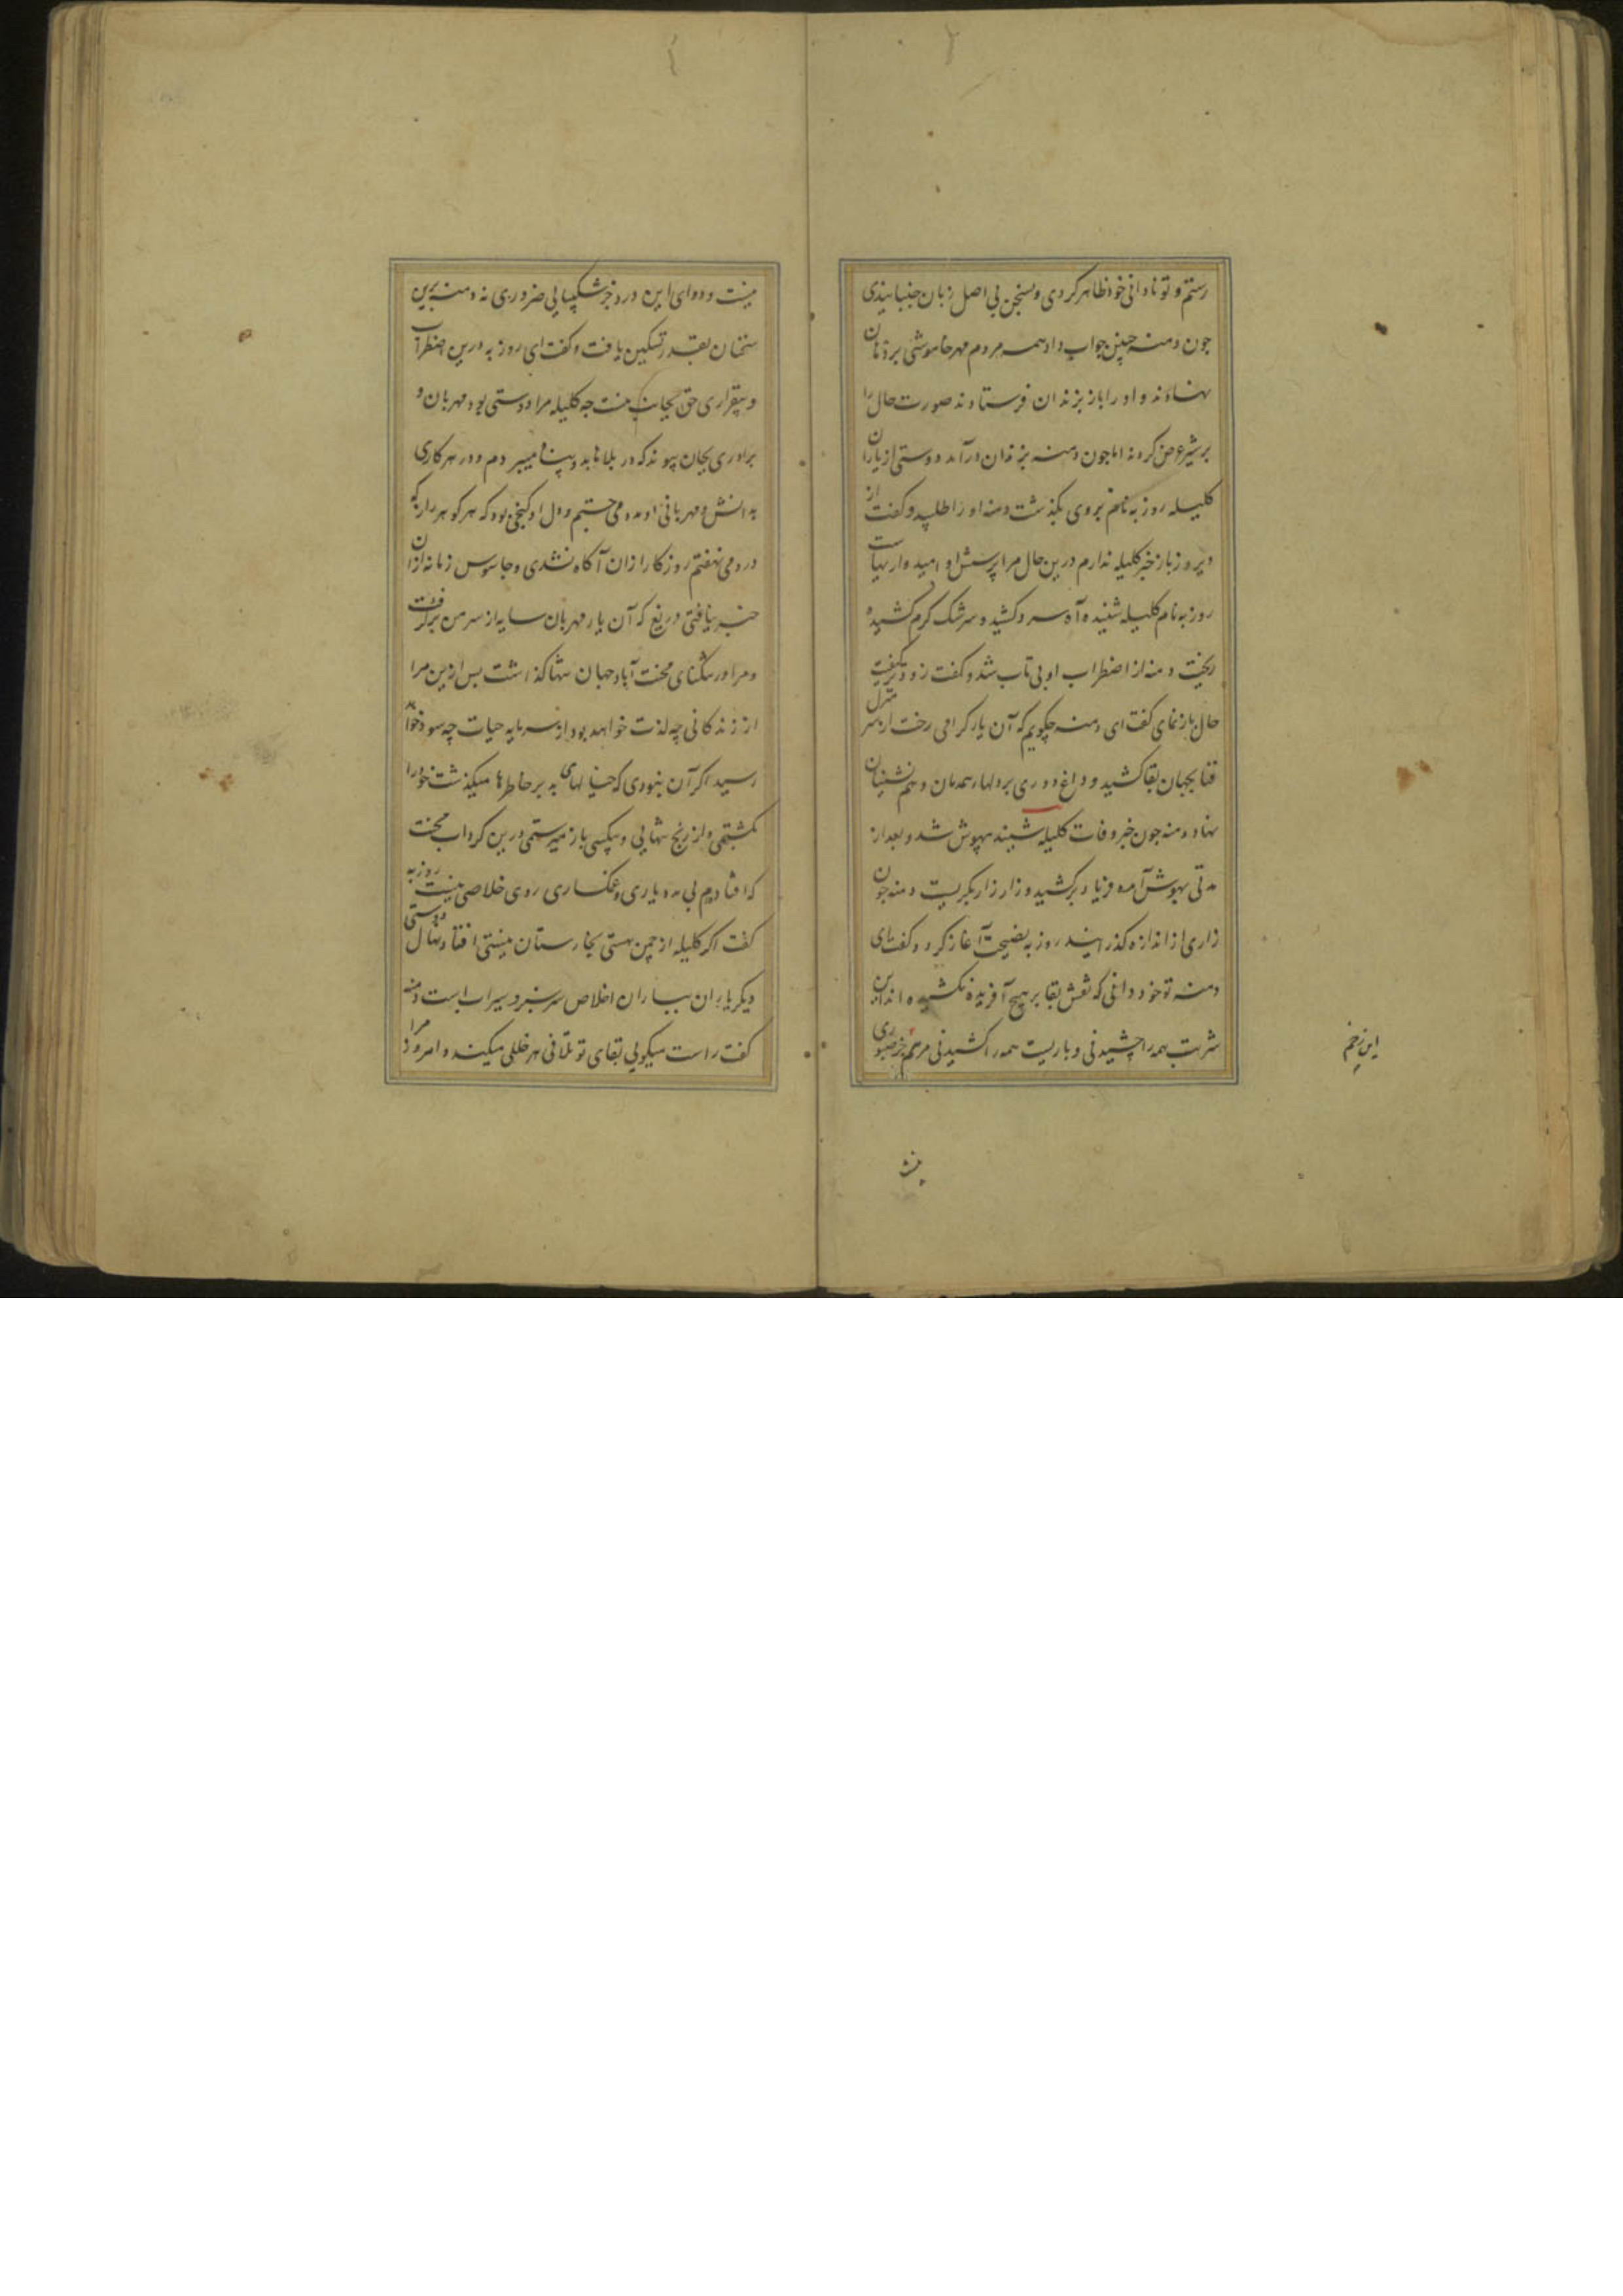 رستم و تو نادانی خود ظاهر کردی و بسخن بی اصل زبان جنبانیدی
جون دمنه چنین جواب داد همه مردم مهر خاموشی بر دهان
نهادند و او را باز بزندان فرستادند صورت حال را
بر شیر عرض کردند اما جون دمنه بزندان درآمد دوستی از یاران
کلیله روزبه نام بروی بگذشت دمنه او را طلبید و گفت از
دیروز باز خبر کلیله ندارم درین حال مرا پرسش او امیدواریهاست
روزبه نام کلیله شنیده آه سرد کشید و سرشک گرم کشیده
ریخت دمنه از اضطراب او بی تاب شد و گفت زودتر کیفیت
حال بازنمای گفت ای دمنه چگویم که آن یار گرامی رخت از سر منزل
فنا بجهان بقا کشید و داغ دوری بر دلهاء همدمان و هم نشینان
نهاد دمنه جون خبر وفات کلیله شنید بیهوش شد و بعد از
مدتی بهوش آمده فریاد برکشید و زار زار بگریست دمنه جون
زاری از اندازه گذرانید روزبه نصیحت آغاز کرد و گفت ای
دمنه تو خود دانی که نقش بقا بر هیچ آفریده نکشیده اند این
شربت همه را چشیدنی و باریست همه را کشیدنی مرهم جز صبوری
این زخم
نیست
نیست و دوای این درد جز شکیبایی ضروری نه دمنه برین
سخنان بقدر تسکین یافت و گفت ای روزبه درین اضطراب
و بیقراری حق بجانب منست جه کلیله مرا دوستی بود مهربان و
برادری بجان پیوند که در بلاها بدو پناه میبردم و در هر کاری
بدانش و مهربانی او مدد می جستم و دل او گنجی بود که هر گوهر راز که
درو می نهفتم روزگار ازان آگاه نشدی و جاسوس زمانه ازان
خبر نیافتی دریغ که آن یار مهربان سایه از سر من برگرفت
و مرا در تنگنای محنت آباد جهان تنها گذاشت بس ازین مرا
از زندگانی چه لذت خواهد بود از سرمایه حیات چه سود خواهد
رسید اگر آن نبودی که خیالهای بد بر خاطرها میگذشت خود را
بکشتمی و از رنج تنهایی و بیکسی باز میرستمی درین گرداب محنت
که افتادم بی مددیاری و غمگساری روی خلاصی نیست روزبه
گفت اگر کلیله از چمن هستی بخارستان نیستی افتاد نهال دوستی
دیگر یاران بباران اخلاص سرسبز و سیراب است دمنه
گفت راست میگویی بقای تو تلافی هر خللی میکند و امروز مرا